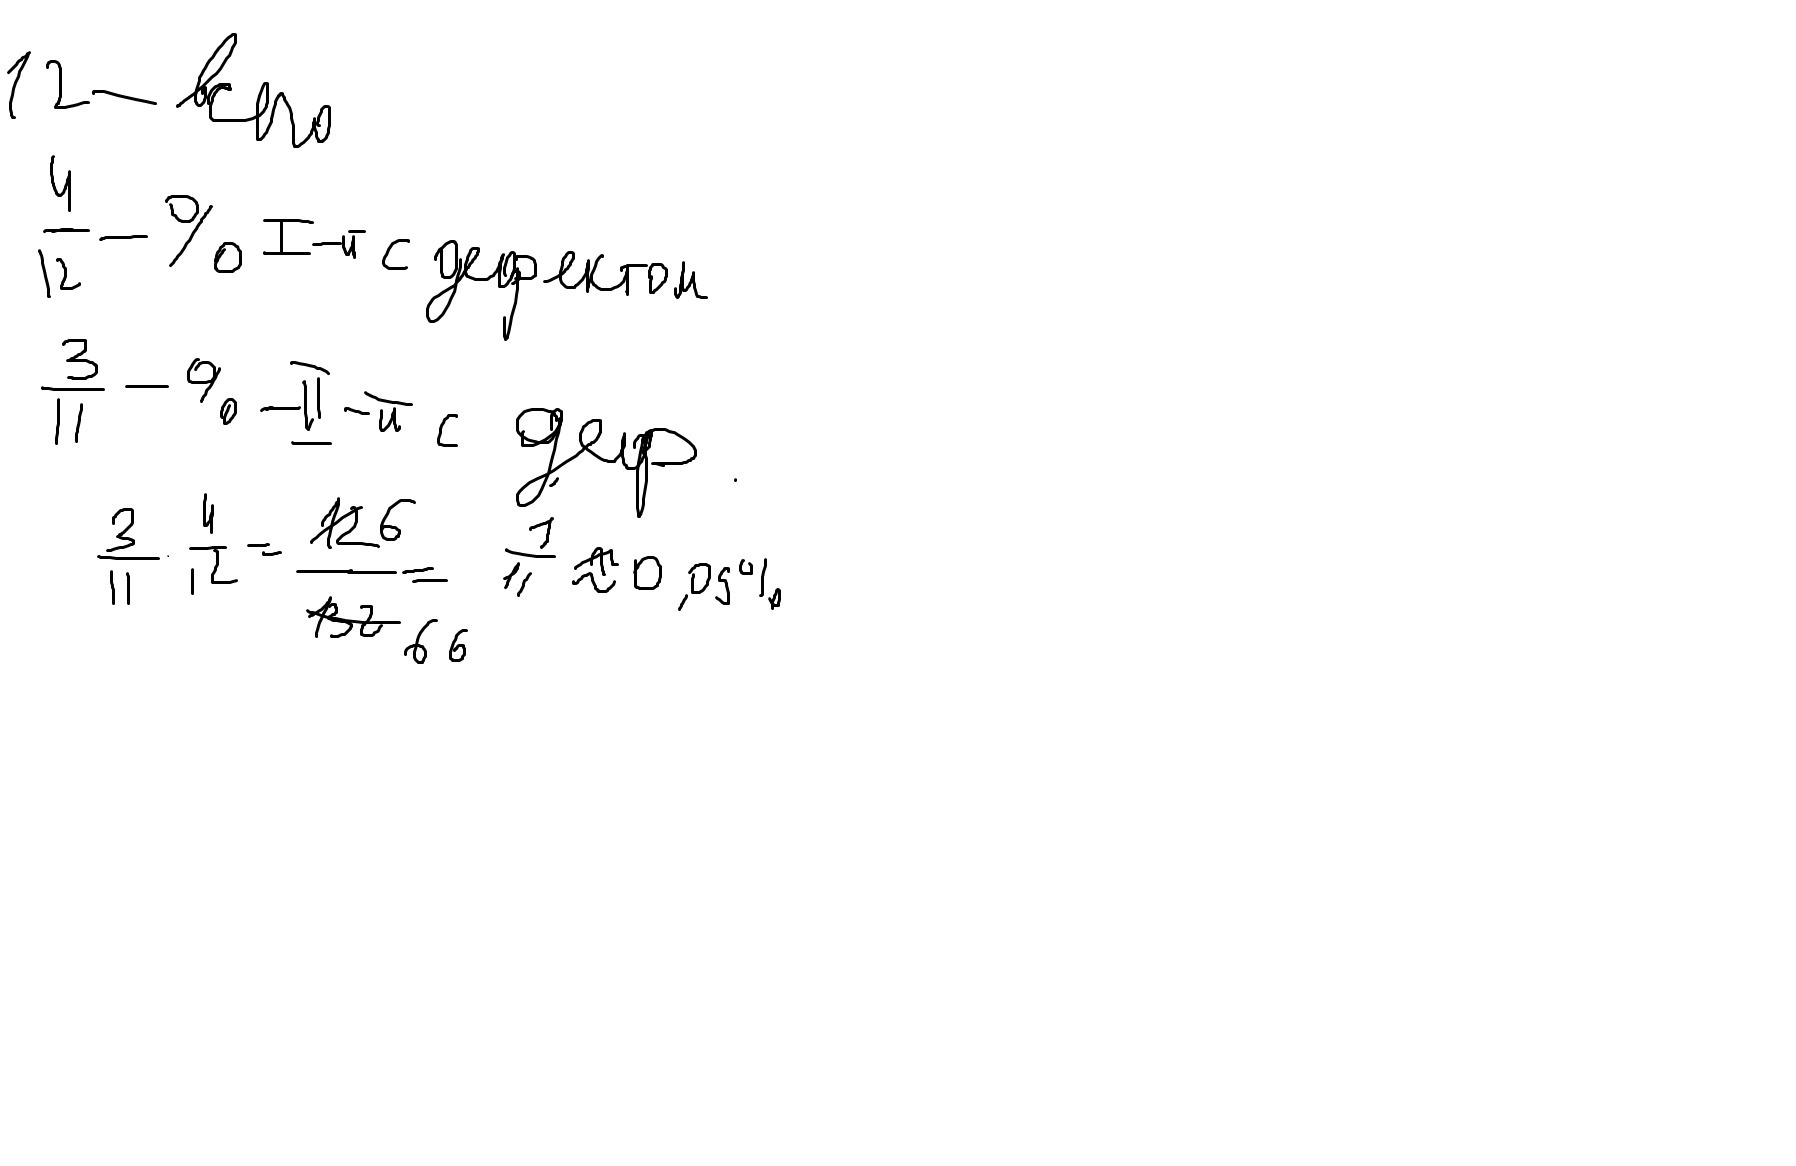 12 — всего
4/12 — % I-й с дефектом
3/11 — % — II-й с деф.
3/11 · 4/12 = 12 6 / 132 66 = 1/11 ≈ 0,09%